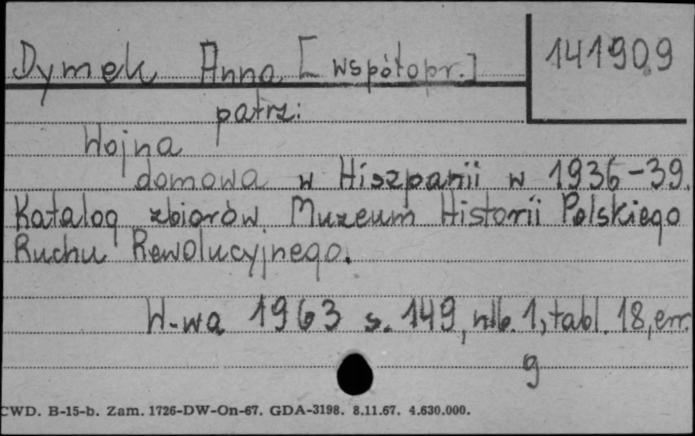 Dymek Anna [współopr.] 141909
patrz:
Wojna
domowa w Hiszpanii w 1936-39.
Katalog zbiorów Muzeum Historii Polskiego
Ruchu Rewolucyjnego.
W-wa 1963 s. 149, nlb. 1, tabl. 18, err.
g
CWD. B-15-b. Zam. 1726-DW-On-67. GDA-3198. 8.11.67. 4.630.000.